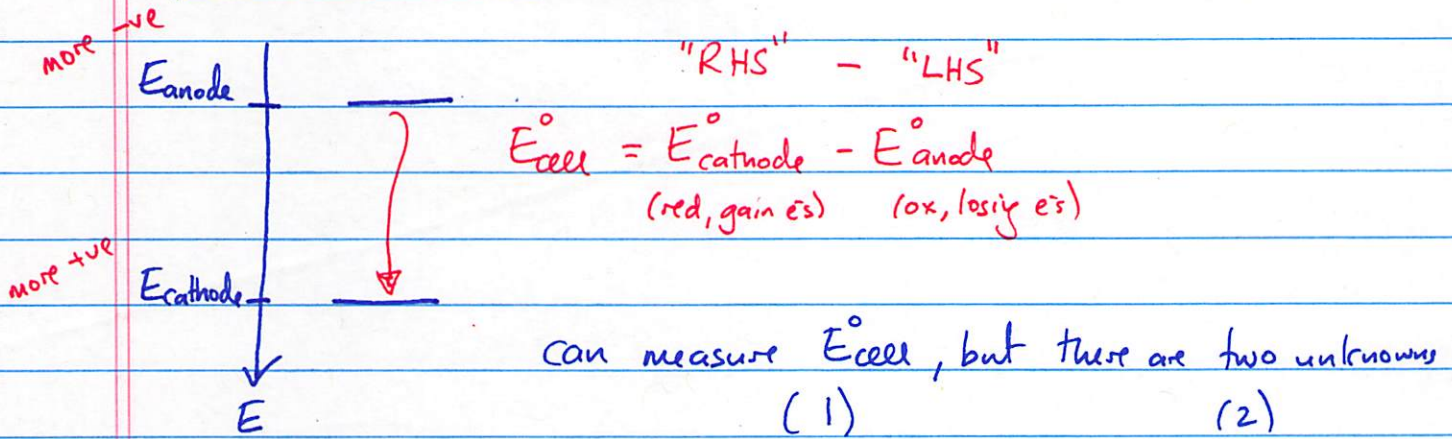 more -ve
"RHS" - "LHS"
Eanode
E°cell = E°cathode - E°anode
(red, gain e's) (ox, losing e's)
more +ve
Ecathode
can measure E°cell, but there are two unknowns
E (1) (2)